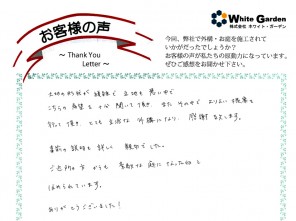 お客様の声
～ Thank You
Letter ～
White Garden
株式会社 ホワイト・ガーデン
今回、弊社で外構・お庭を施工されて
いかがだったでしょうか？
お客様の声が私たちの原動力になっています。
ぜひご感想をお聞かせ下さい。
土地の形状が複雑で 立地も悪い中で
こちらの希望を十分聞いて頂き、また その中で よりよい提案を
行って頂き、とても立派な外構になり、感謝致します。
事前の説明も詳しく 親切でした。
ご近所の方からも 素敵な庭に
ほめられています。
ありがとうございました！